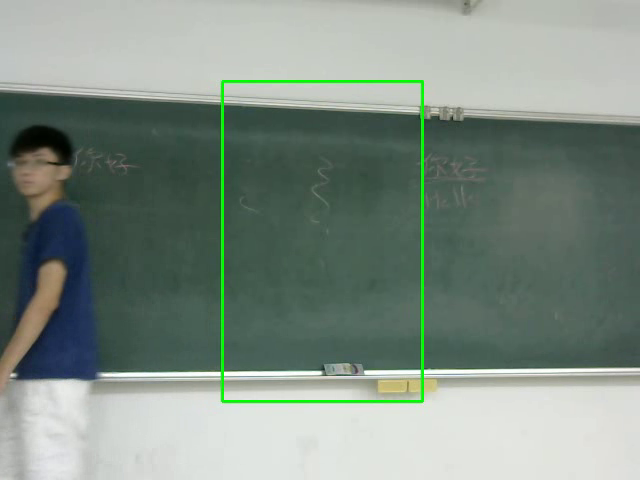 你好
你好
Hello